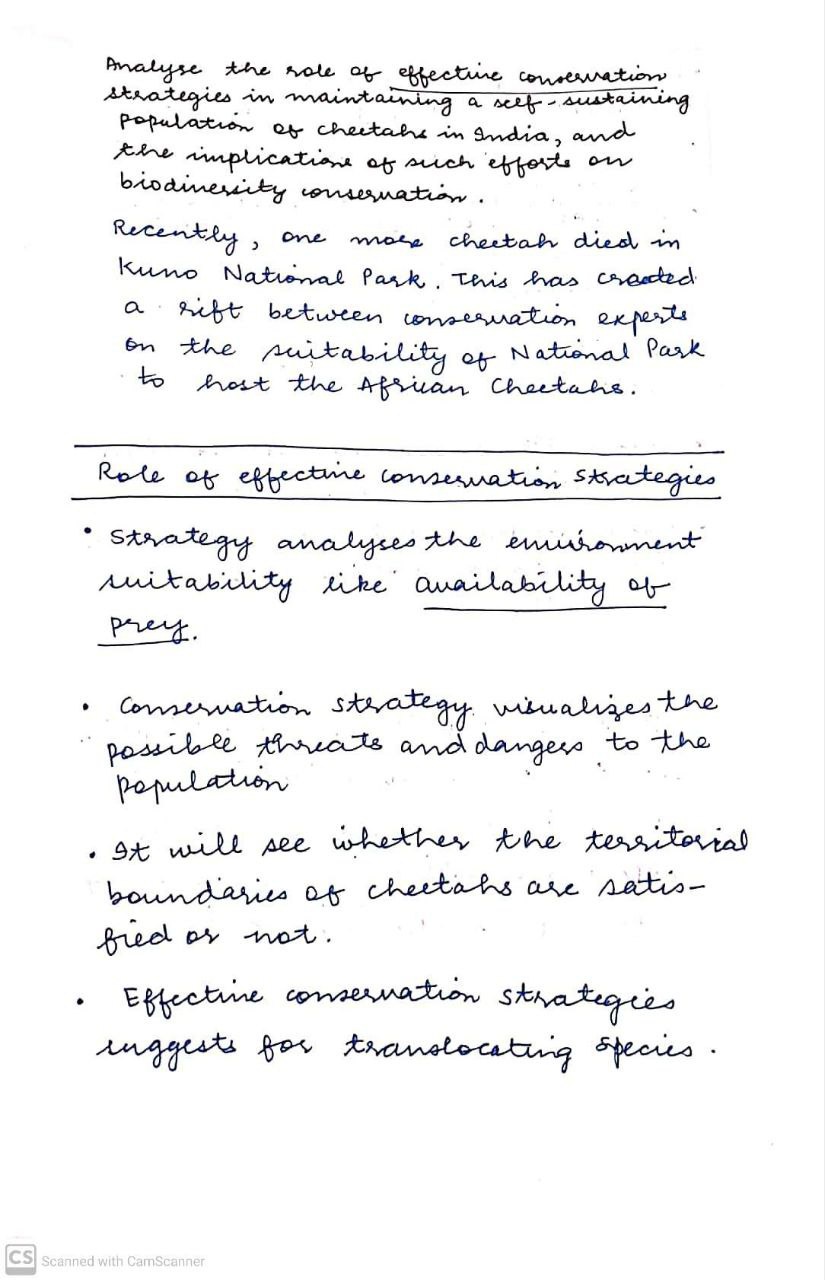 Analyse the role of effective conservation
strategies in maintaining a self-sustaining
population of cheetahs in India, and
the implications of such efforts on
biodiversity conservation.
Recently, one more cheetah died in
Kuno National Park. This has created
a rift between conservation experts
on the suitability of National Park
to host the African Cheetahs.
Role of effective conservation strategies
• Strategy analyses the environment
suitability like availability of
prey.
• Conservation strategy visualizes the
possible threats and dangers to the
population
• It will see whether the territorial
boundaries of cheetahs are satis-
fied or not.
• Effective conservation strategies
suggests for translocating species.
CS Scanned with CamScanner